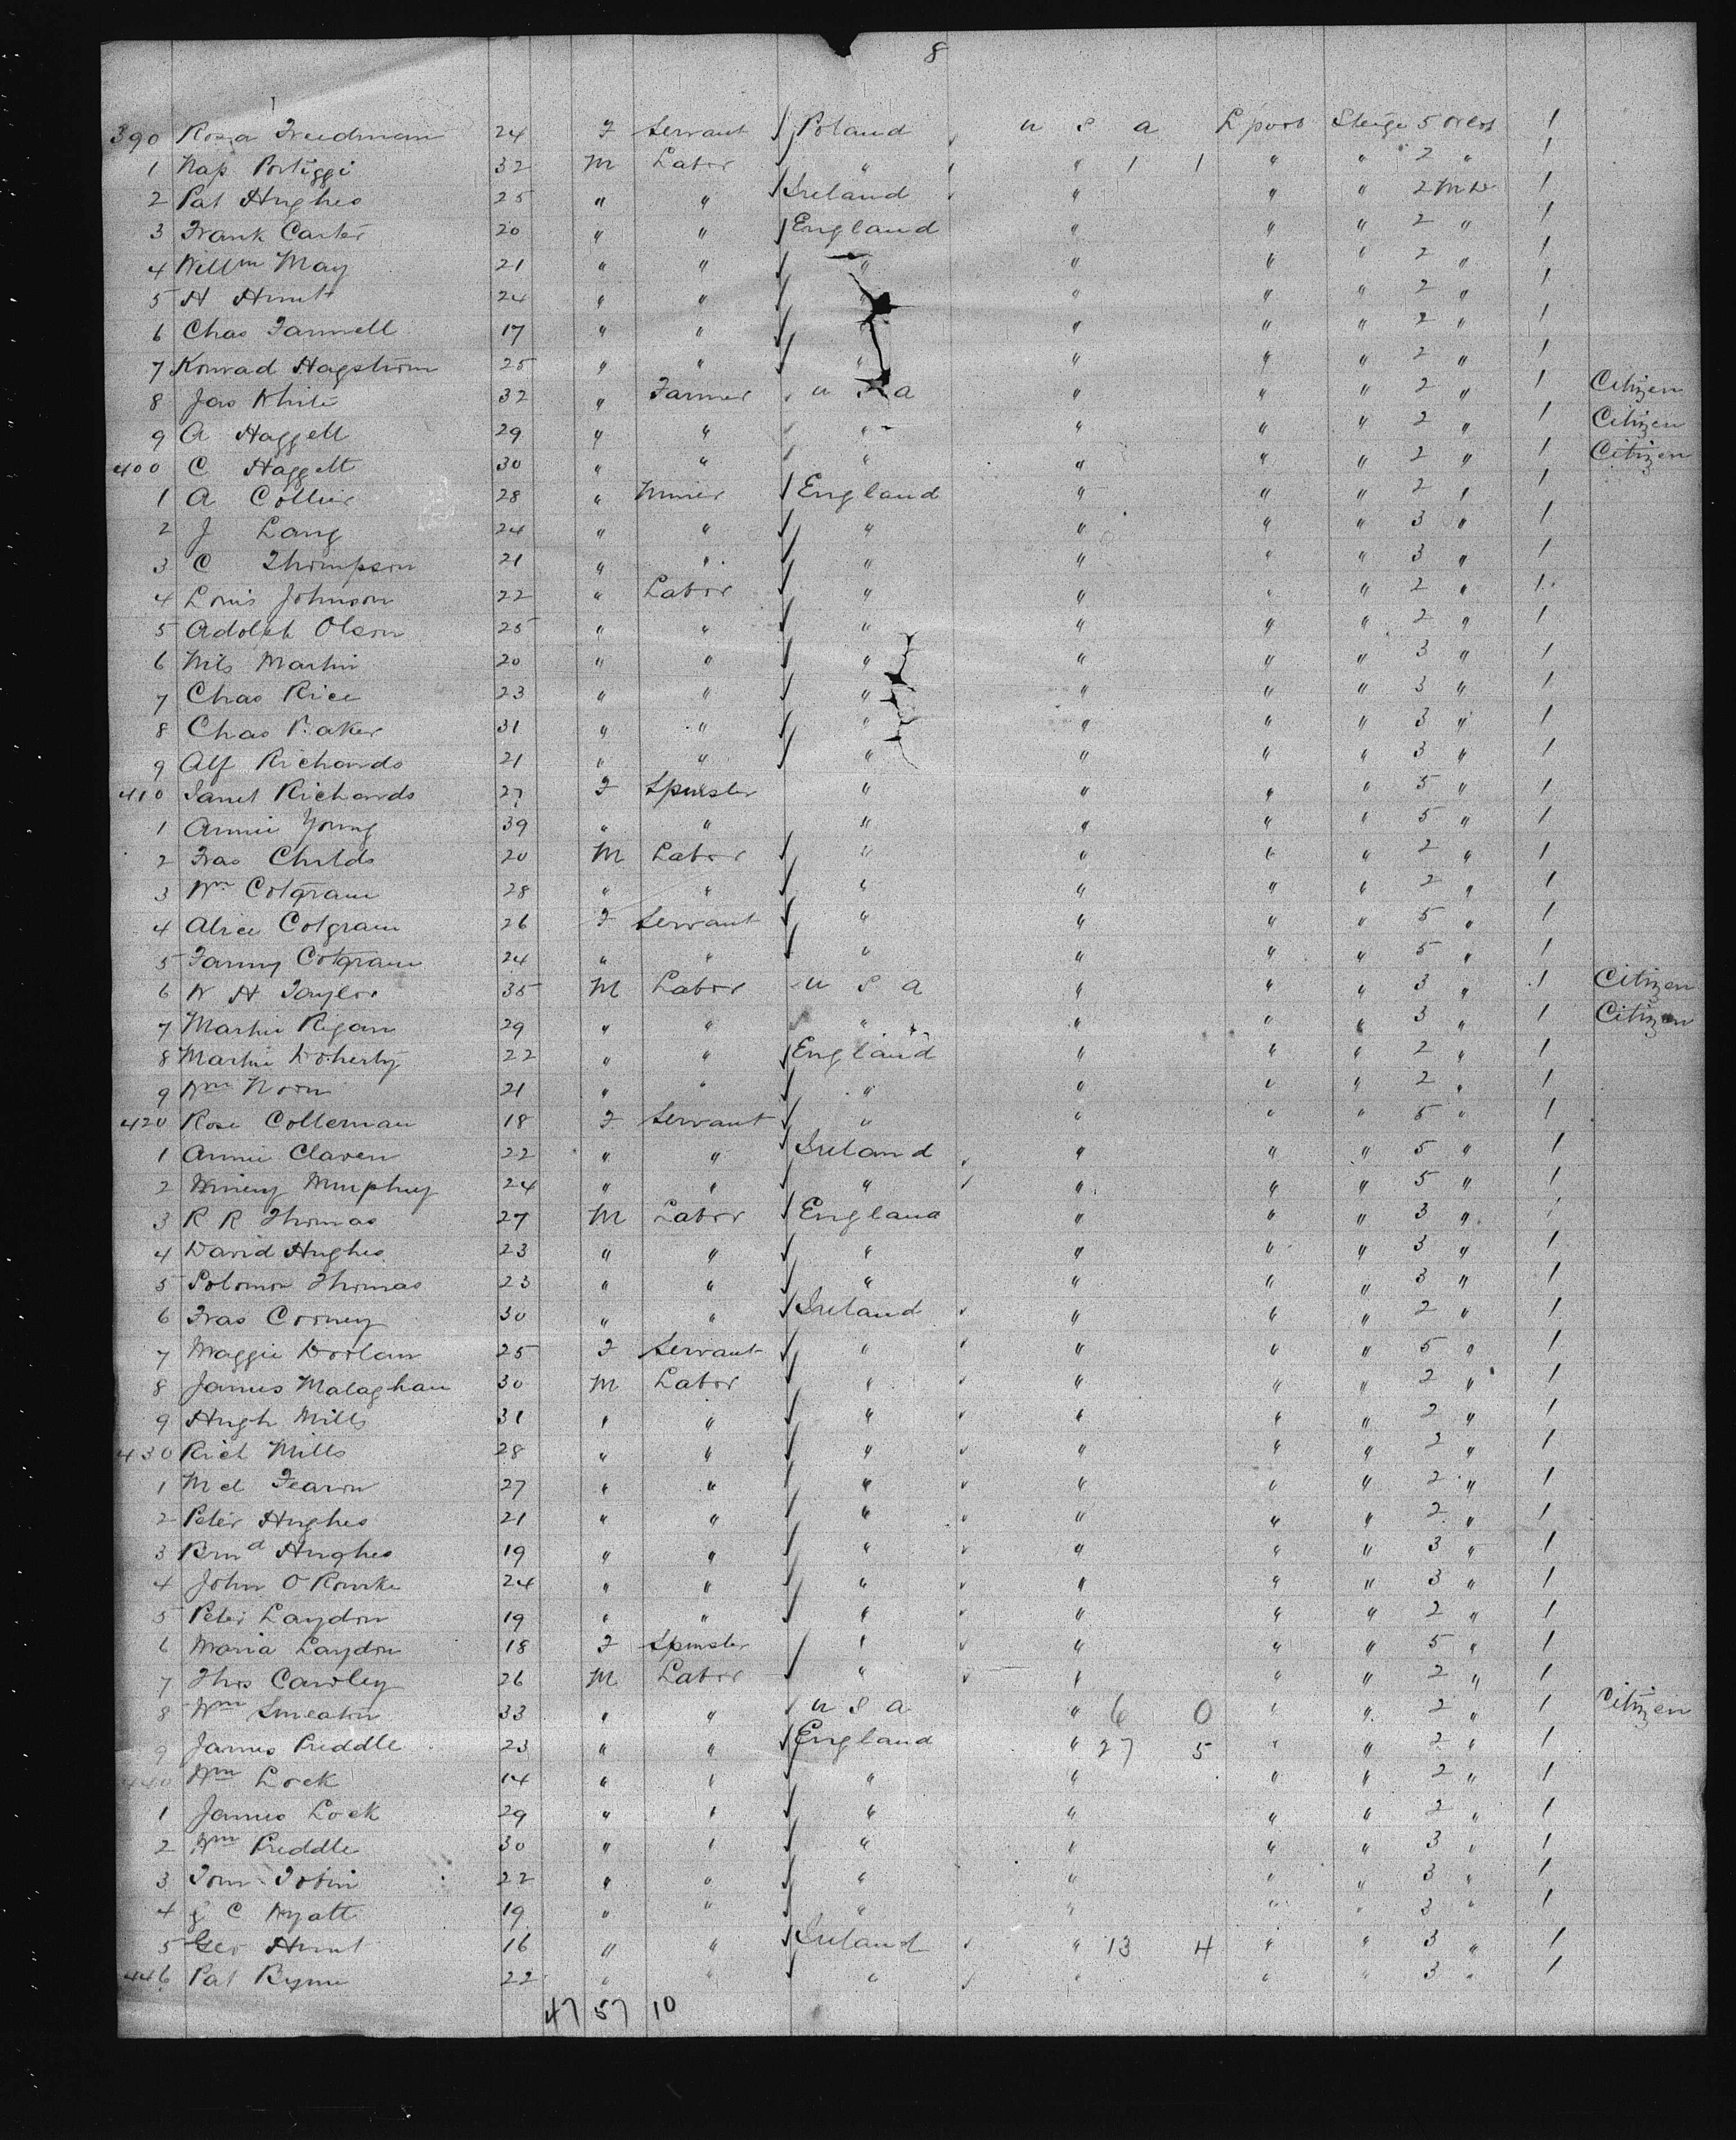 8
390 Rosa Freedman 24 F Servant Poland U S A L pool Steige 5 West 1
1 Nap Portiggi 32 M Labor " " 1 1 " " 2 " 1
2 Pat Hughes 25 " " Ireland " " " 2 1
3 Frank Carter 20 " " England " " " 2 " 1
4 Willm May 21 " " " " " " 2 " 1
5 H Hunt 24 " " " " " " 2 " 1
6 Chas Farnell 17 " " " " " " 2 " 1
7 Konrad Hagstrom 25 " " " " " " 2 " 1
8 Jas White 32 " Farmer U S A " " " 2 " 1 Citizen
9 A Haggett 29 " " " " " " 2 " 1 Citizen
400 C Haggett 30 " " " " " " 2 " 1 Citizen
1 A Collier 28 " Miner England " " " 2 " 1
2 J Lang 24 " " " " " " 3 " 1
3 C Thompson 21 " " " " " " 3 " 1
4 Louis Johnson 22 " Labor " " " " 2 " 1
5 Adolph Olson 25 " " " " " " 2 " 1
6 Nils Martin 20 " " " " " " 3 " 1
7 Chas Rice 23 " " " " " " 3 " 1
8 Chas Baker 31 " " " " " " 3 " 1
9 Alf Richards 21 " " " " " " 3 " 1
410 Janet Richards 27 F Spinster " " " " 5 " 1
1 Annie Young 39 " " " " " " 5 " 1
2 Fras Childs 20 M Labor " " " " 2 " 1
3 Wm Cotgram 28 " " " " " " 2 " 1
4 Alice Cotgram 26 F Servant " " " " 5 " 1
5 Fanny Cotgram 24 " " " " " " 5 " 1
6 W H Taylor 35 M Labor U S A " " " 3 " 1 Citizen
7 Martin Rigan 29 " " " " " " 3 " 1 Citizen
8 Martin Doherty 22 " " England " " " 2 " 1
9 Wm Norn 21 " " " " " " 2 " 1
420 Rose Colleman 18 F Servant " " " " 5 " 1
1 Annie Claven 22 " " Ireland " " " 5 " 1
2 Wineny Murphey 24 " " " " " " 5 " 1
3 R R Thomas 27 M Labor England " " " 3 " 1
4 David Hughes 23 " " " " " " 3 " 1
5 Solomon Thomas 23 " " " " " " 3 " 1
6 Fras Corney 30 " " Ireland " " " 2 " 1
7 Maggie Doolan 25 F Servant " " " " 5 " 1
8 James Malaghan 30 M Labor " " " " 2 " 1
9 Hugh Mills 31 " " " " " " 2 " 1
430 Rich Mills 28 " " " " " " 2 " 1
1 Ml Fearon 27 " " " " " " 2 " 1
2 Peter Hughes 21 " " " " " " 2 " 1
3 Brnd Hughes 19 " " " " " " 3 " 1
4 John O Rourke 24 " " " " " " 3 " 1
5 Peter Laydon 19 " " " " " " 2 " 1
6 Maria Laydon 18 F Spinster " " " " 5 " 1
7 Thos Cawley 26 M Labor " " " " 2 " 1
8 Wm Smeaton 33 " " U S A " 6 0 " " 2 " 1 Citizen
9 James Priddle 23 " " England " 27 5 " " 2 " 1
440 Wm Lock 14 " " " " " " 2 " 1
1 James Lock 29 " " " " " " 2 " 1
2 Wm Priddle 30 " " " " " " 3 " 1
3 Tom Tobin 22 " " " " " " 3 " 1
4 C Wyatt 19 " " " " " " 3 " 1
5 Geo Hunt 16 " " Ireland " 13 4 " " 3 " 1
446 Pat Byrne 22 " " " " " " 3 " 1
47 57 10